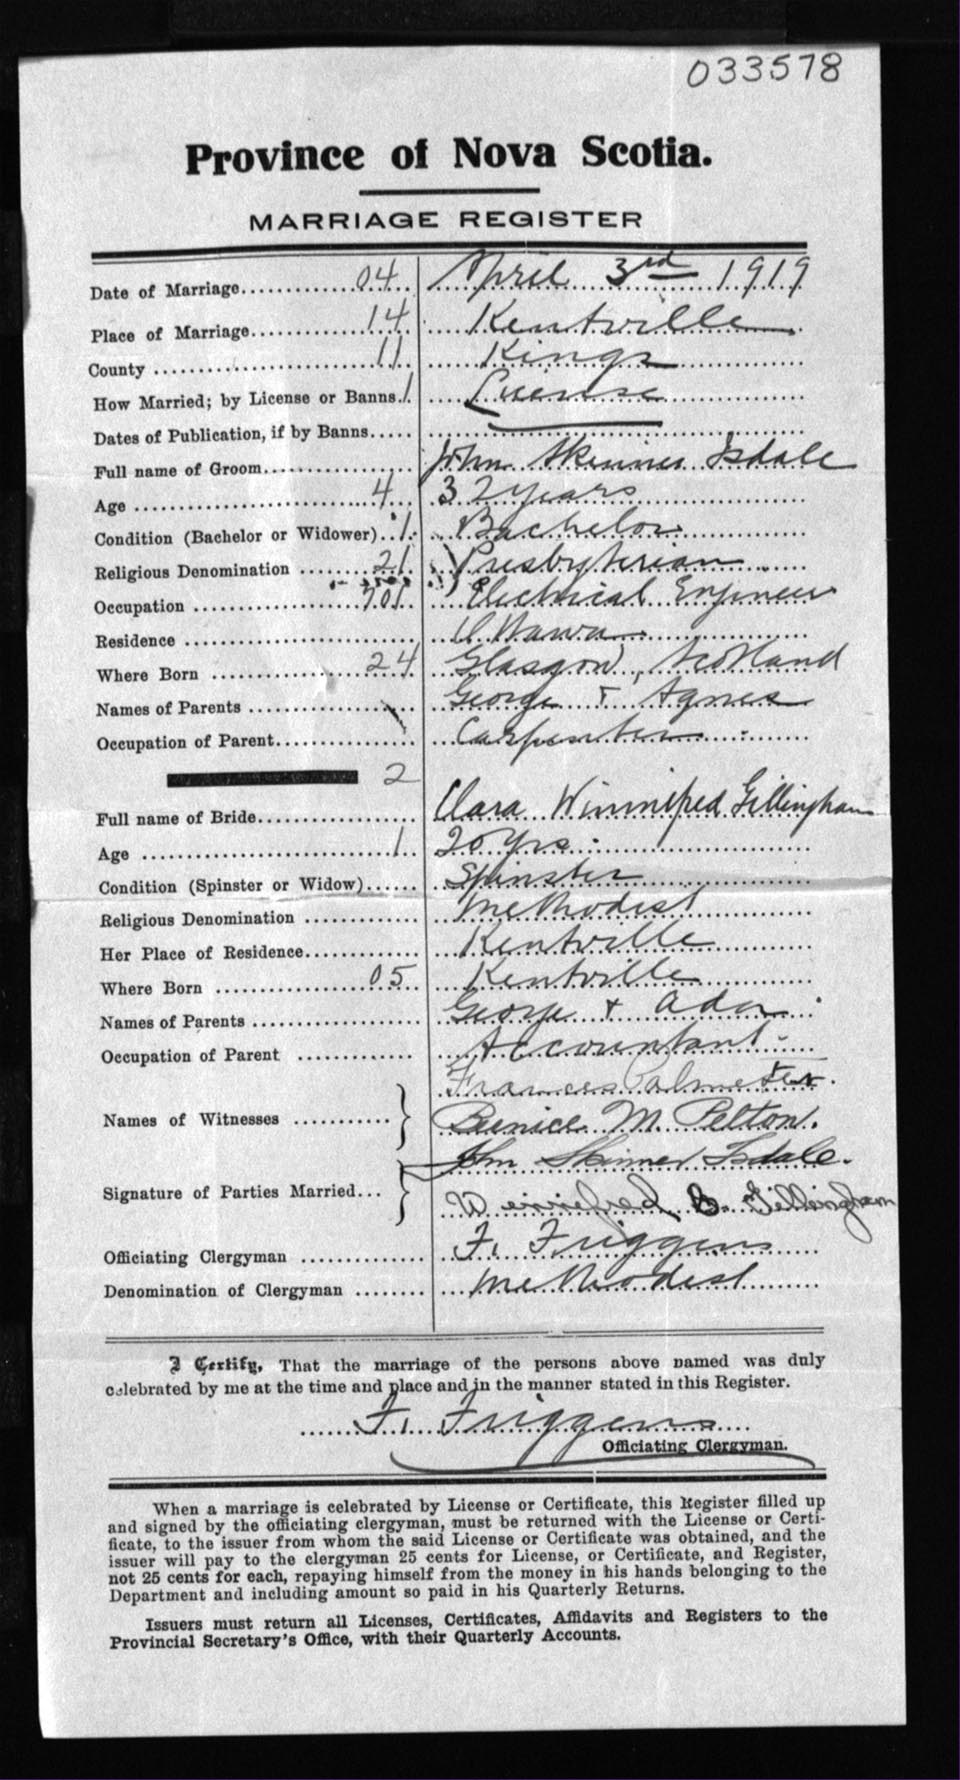 033578
Province of Nova Scotia.
MARRIAGE REGISTER
Date of Marriage 04 April 3rd 1919
Place of Marriage 14 Kentville
County 11 Kings
How Married; by License or Banns 1 License
Dates of Publication, if by Banns
Full name of Groom John Skinner Isdale
Age 4 32 years
Condition (Bachelor or Widower) 1 Bachelor
Religious Denomination 21 Presbyterian
Occupation 701 Electrical Engineer
Residence Ottawa
Where Born 24 Glasgow, Scotland
Names of Parents George + Agnes
Occupation of Parent Carpenter
2
Full name of Bride Clara Winnifred Gillingham
Age 1 20 yrs.
Condition (Spinster or Widow) Spinster
Religious Denomination Methodist
Her Place of Residence Kentville
Where Born 05 Kentville
Names of Parents George + Ada
Occupation of Parent Accountant
Frances Palmeter.
Names of Witnesses Bernice M. Pelton.
John Skinner Isdale.
Signature of Parties Married...
Winnifred C. Gillingham
Officiating Clergyman F. Friggens
Denomination of Clergyman Methodist
I Certify, That the marriage of the persons above named was duly
celebrated by me at the time and place and in the manner stated in this Register.
F. Friggens
Officiating Clergyman.
When a marriage is celebrated by License or Certificate, this Register filled up
and signed by the officiating clergyman, must be returned with the License or Certi-
ficate, to the issuer from whom the said License or Certificate was obtained, and the
issuer will pay to the clergyman 25 cents for License, or Certificate, and Register,
not 25 cents for each, repaying himself from the money in his hands belonging to the
Department and including amount so paid in his Quarterly Returns.
Issuers must return all Licenses, Certificates, Affidavits and Registers to the
Provincial Secretary's Office, with their Quarterly Accounts.